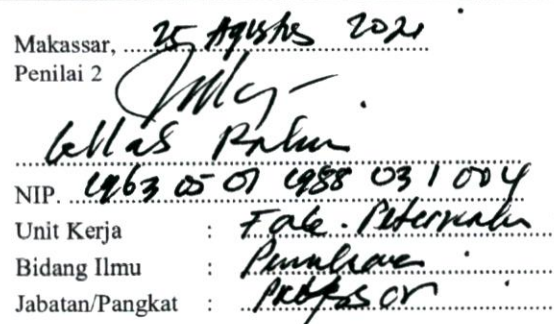 Makassar, 25 Agustus 2021
Penilai 2
Lellah Rahim
NIP. 1963 05 01 1988 03 1 004
Unit Kerja : Fak. Peternakan
Bidang Ilmu :
Jabatan/Pangkat : Profesor